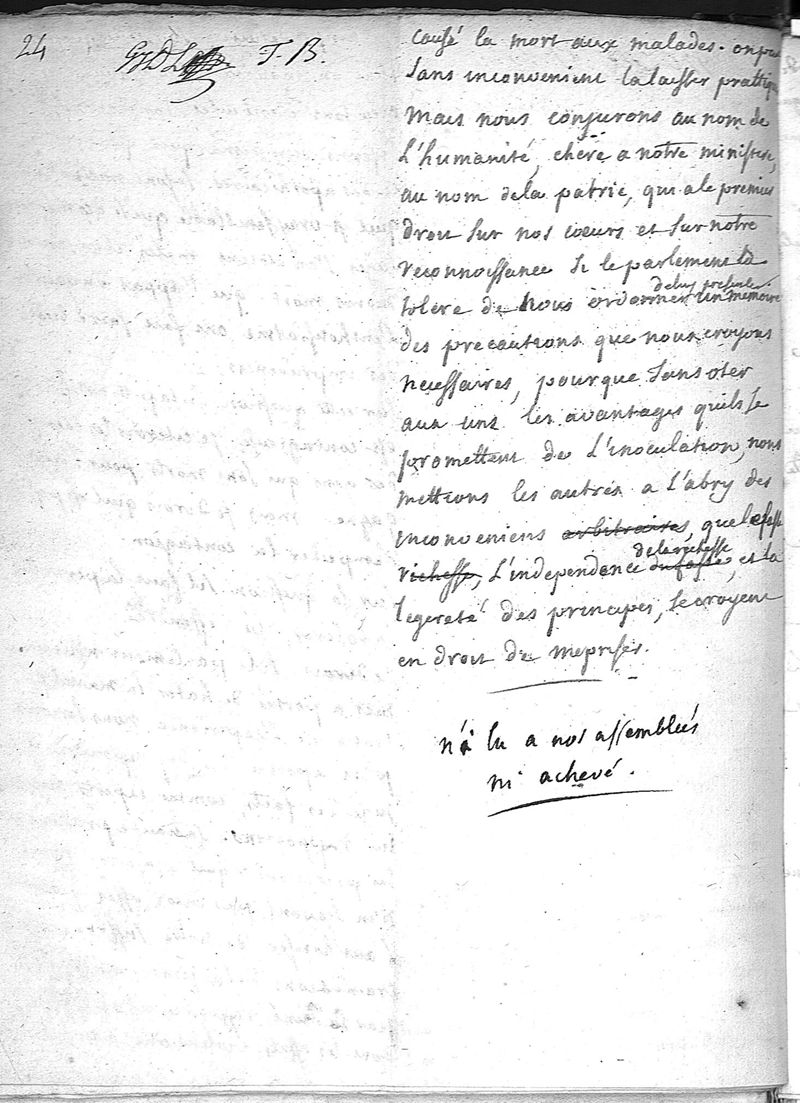 24
T. B.
causé la mort aux malades. on peu
sans inconvenient la laisser prattiqu
mais nous conjurons au nom de
L'humanité, chere a notre ministere,
au nom dela patrie, qui a le premier
droit sur nos cœurs et sur notre
reconnoissance si le parlement la
tolere de nous ordonner un memoire
des precautions que nous croyons
necessaires, pour que sans oter
aux uns les avantages quils se
promettent de L'inoculation, nous
mettions les autres a L'abry des
inconveniens arbitraires, que le faste
richesse, L'independance de la richesse du faste, et la
legereté des principes, se croyent
en droit de mepriser.
n'a lu a nos assemblées
ni achevé.